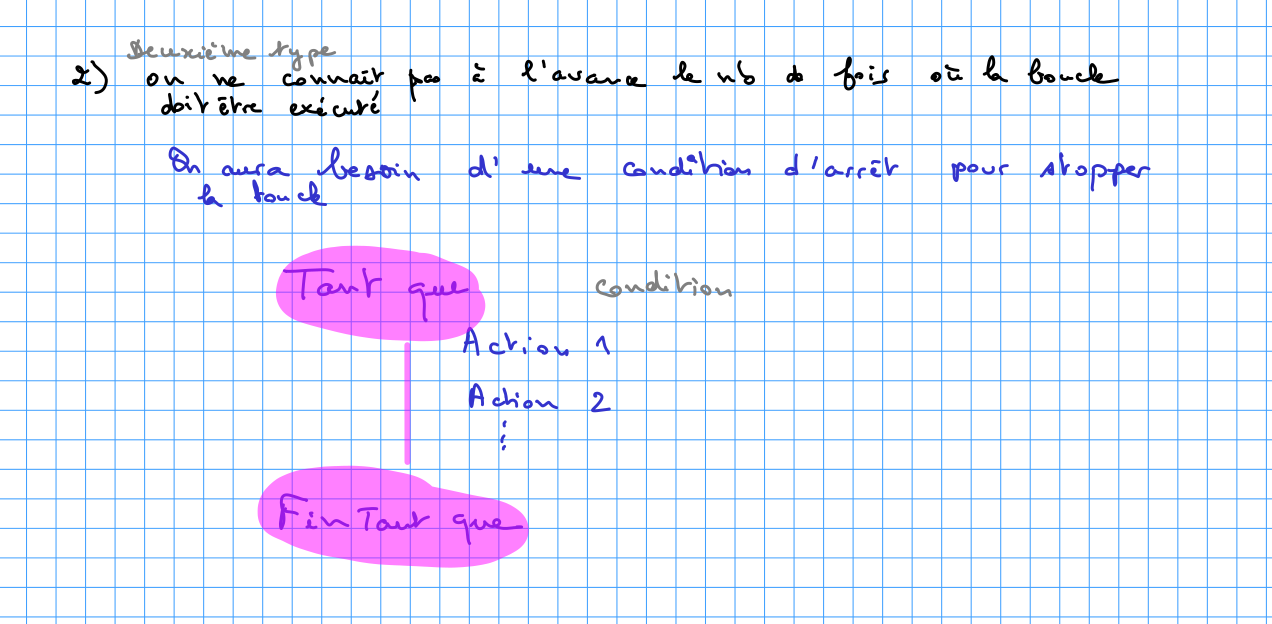 Deuxième type
2) on ne connait pas à l'avance le nb de fois où la boucle
doit être exécuté
On aura besoin d'une condition d'arrêt pour stopper
la boucle
Tant que condition
Action 1
Action 2
⋮
Fin Tant que